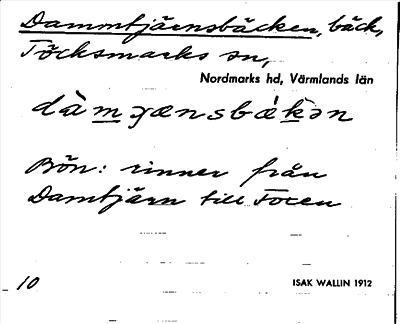 Dammtjärnsbäcken, bäck,
Töcksmarks sn,
Nordmarks hd, Värmlands län
dàmɟænsbǽkən
Bön: rinner från
Damtjärn till Foxen
10
ISAK WALLIN 1912